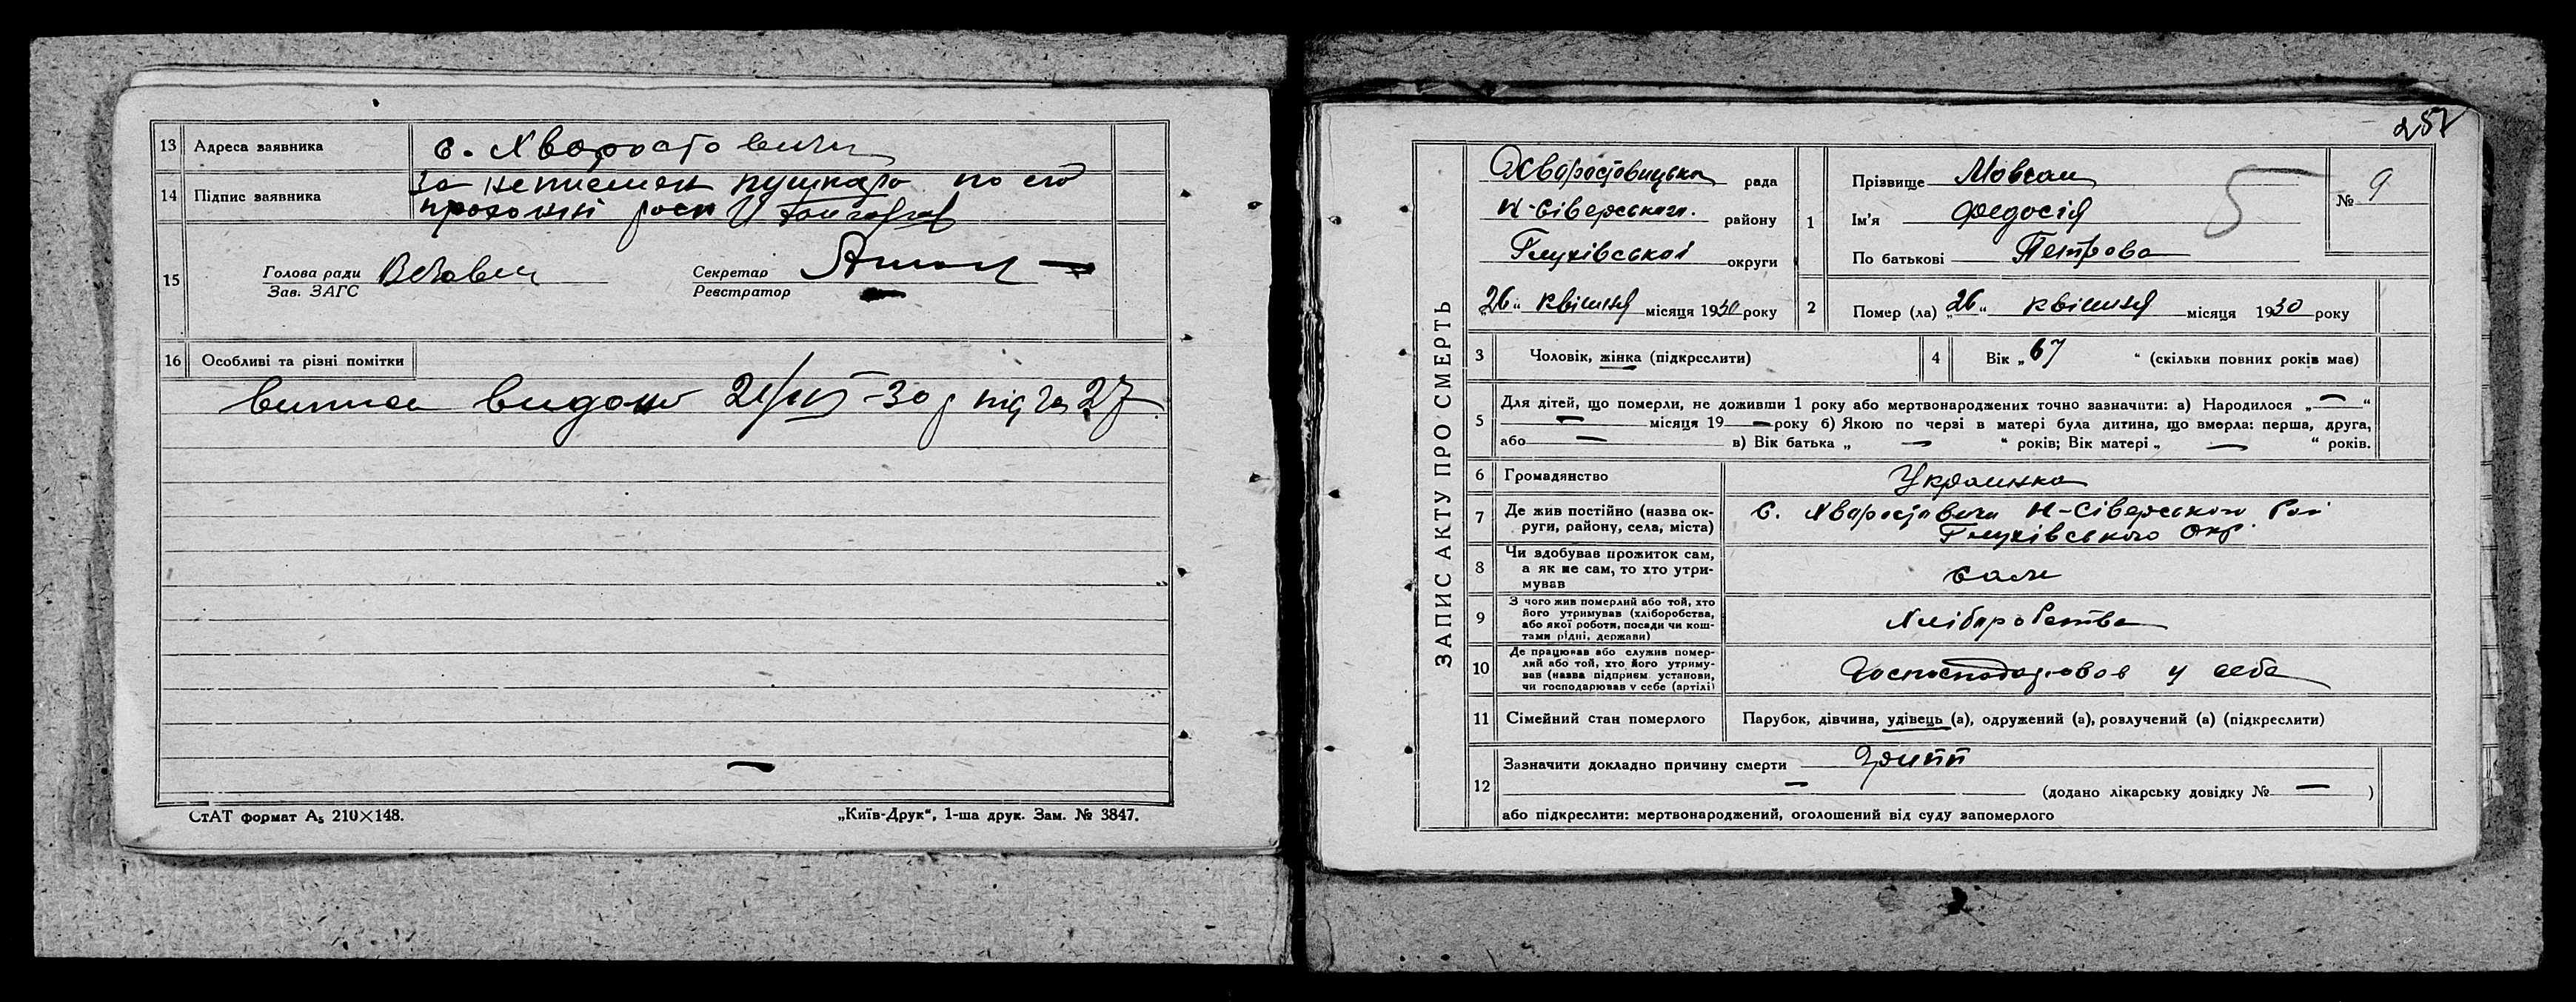 13 Адреса заявника с. Хворостовичи
14 Підпис заявника За неписмен пушкаро по его
прозошні роспи
15 Голова ради Секретар
Зав. ЗАГС Реєстратор
16 Особливі та різні помітки
випис видано 21/ -30 р під № 27
СтАТ формат А₅ 210×148. „Київ-Друк“, 1-ша друк. Зам. № 3847.
257
ЗАПИС АКТУ ПРО СМЕРТЬ
Хворостовицька рада
Н-Сіверського району
Глухівської округи
„26“ квітня місяця 1930 року
1 Прізвище Мовчан
Ім'я Федосія
По батькові Петрова
№ 9
5
2 Помер (ла) „26“ квітня місяця 1930 року
3 Чоловік, жінка (підкреслити)
4 Вік „67“ (скільки повних років має)
5 Для дітей, що померли, не доживши 1 року або мертвонароджених точно зазначити: а) Народилося „—“
— місяця 19 — року б) Якою по черзі в матері була дитина, що вмерла: перша, друга,
або — в) Вік батька „ — “ років; Вік матері „ — “ років.
6 Громадянство Украинка
7 Де жив постійно (назва ок-
руги, району, села, міста)
с. Хворостовичи Н-Сіверського Рай
Глухівського Окр.
8 Чи здобував прожиток сам,
а як не сам, то хто утри-
мував
сам
9 З чого жив померлий або той, хто
його утримував (хліборобства,
або якої роботи, посади чи кош-
тами рідні, держави)
Хліборобства
10 Де працював або служив помер-
лий або той, хто його утриму-
вав (назва підприєм. установи,
чи господарював у себе (артілі)
Госпосподарював у себе
11 Сімейний стан померлого Парубок, дівчина, удівець (а), одружений (а), розлучений (а) (підкреслити)
12 Зазначити докладно причину смерти грипп
— (додано лікарську довідку № — )
або підкреслити: мертвонароджений, оголошений від суду запомерлого